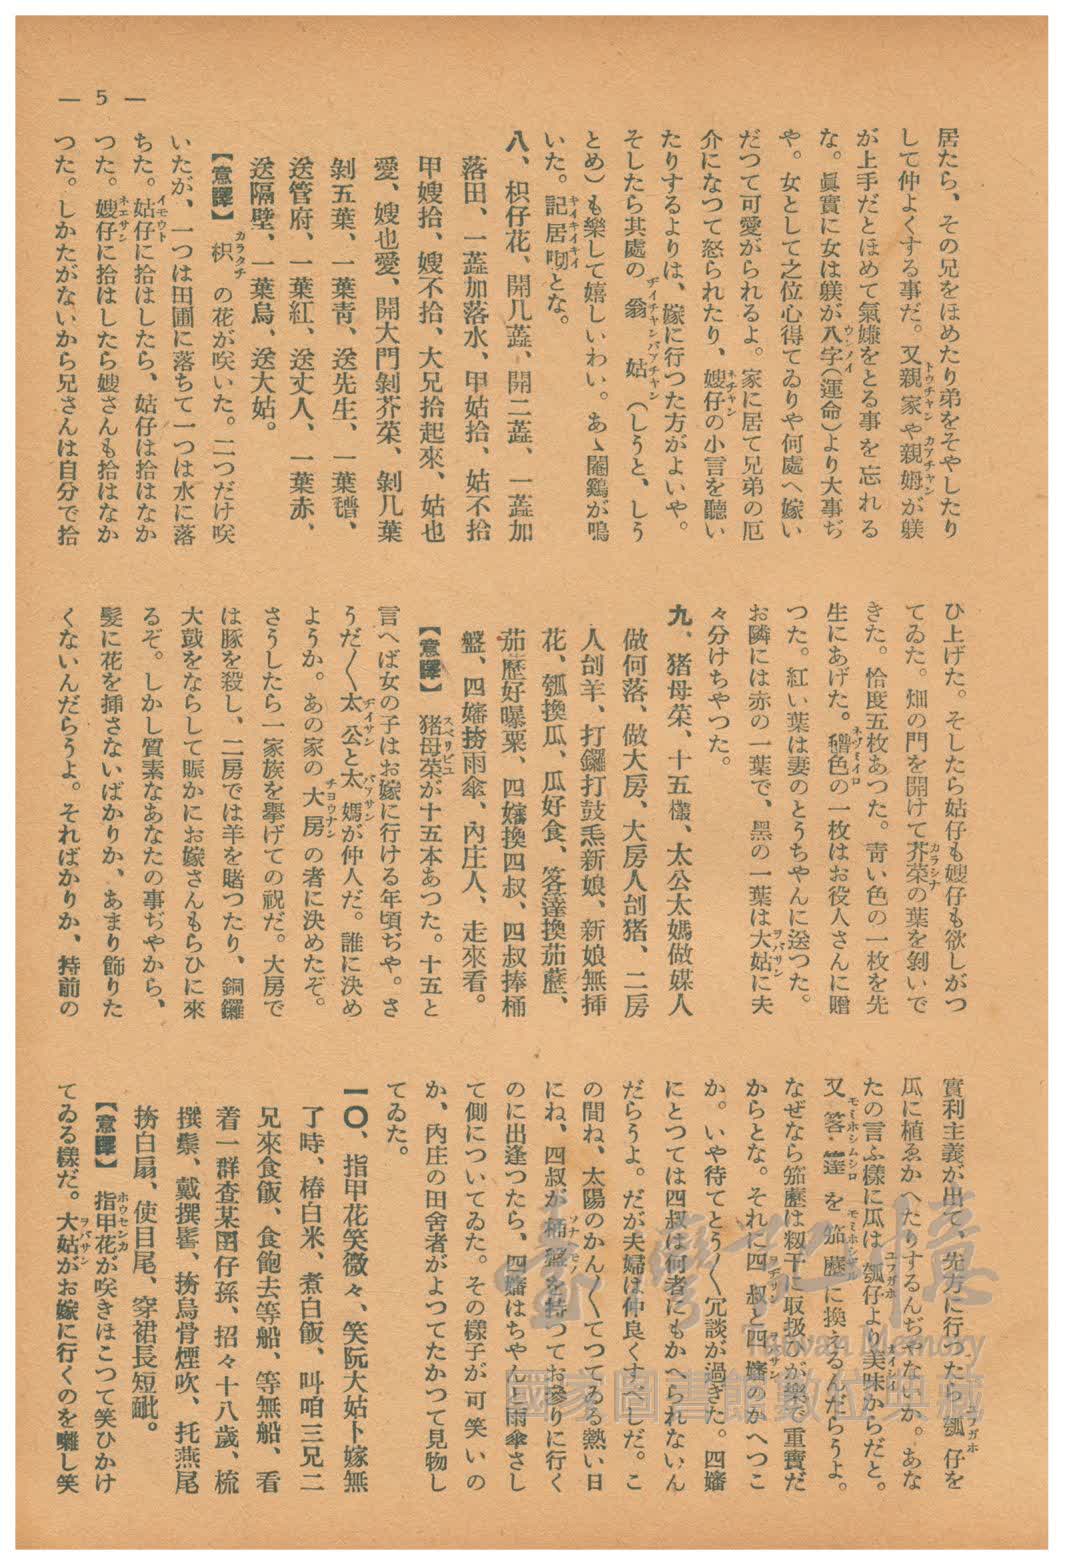 — 5 —
居たら、その兄をほめたり弟をそやしたり
して仲よくする事だ。又親家や親姆が躾
が上手だとほめて氣嫌をとる事を忘れる
な。眞實に女は躾が八字(運命)より大事ぢ
や。女として之位心得てゐりや何處へ嫁い
だつて可愛がられるよ。家に居て兄弟の厄
介になつて怒られたり、嫂仔の小言を聽い
たりするよりは、嫁に行つた方がよいや。
そしたら其處の翁姑(しうと、しう
とめ)も樂して嬉しいわい。あゝ閹鷄が鳴
いた。記居とな。
八、枳仔花、開几蕋、開二蕋、一蕋加
落田、一蕋加落水、甲姑拾、姑不拾
甲嫂拾、嫂不拾、大兄拾起來、姑也
愛、嫂也愛、開大門剝芥菜、剝几葉
剝五葉、一葉靑、送先生、一葉、
送管府、一葉紅、送丈人、一葉赤、
送隔壁、一葉烏、送大姑。
【意譯】 枳の花が咲いた。二つだけ咲
いたが、一つは田圃に落ちて一つは水に落
ちた。姑仔に拾はしたら、姑仔は拾はなか
つた。嫂仔に拾はしたら嫂さんも拾はなか
つた。しかたがないから兄さんは自分で拾
ひ上げた。そしたら姑仔も嫂仔も欲しがつ
てゐた。畑の門を開けて芥菜の葉を剝いで
きた。恰度五枚あつた。靑い色の一枚を先
生にあげた。色の一枚はお役人さんに贈
つた。紅い葉は妻のとうちやんに送つた。
お隣には赤の一葉で、黑の一葉は大姑に夫
々分けちやつた。
九、猪母菜、十五欉、太公太媽做媒人
做何落、做大房、大房人刣猪、二房
人刣羊、打鑼打鼓𤆬新娘、新娘無揷
花、瓠換瓜、瓜好食、笿蓬換茄藶、
茄藶好曝粟、四嬸換四叔、四叔捧桶
盤、四嬸拵雨傘、內庄人、走來看。
【意譯】 猪母菜が十五本あつた。十五と
言へば女の子はお嫁に行ける年頃ぢや。さ
うだ〱太公と太媽が仲人だ。誰に決め
ようか。あの家の大房の者に決めたぞ。
さうしたら一家族を擧げての祝だ。大房で
は豚を殺し、二房では羊を賭つたり、銅鑼
大鼓をならして賑かにお嫁さんもらひに來
るぞ。しかし質素なあなたの事ぢやから、
髮に花を揷さないばかりか、あまり飾りた
くないんだらうよ。そればかりか、持前の
實利主義が出て、先方に行つたら瓠仔を
瓜に植ゑかへたりするんぢやないか。あな
たの言ふ樣に瓜は瓠仔より美味からだと。
又笿を笳藶に換えるんだらうよ。
なぜなら笳藶は籾干に取扱ひが樂で重寶だ
からとな。それに四叔と四嬸のかへつこ
か。いや待てとう〱冗談が過ぎた。四嬸
にとつては四叔は何者にもかへられないん
だらうよ。だが夫婦は仲良くすべしだ。こ
の間ね、太陽のかん〱てつてゐる熱い日
にね、四叔が桶盤を持つてお參りに行く
のに出逢つたら、四嬸はちやんと雨傘さし
て側についてゐた。その樣子が可笑いの
か、內庄の田舍者がよつてたかつて見物し
てゐた。
一〇、指甲花笑微々、笑阮大姑卜嫁無
了時、椿白米、煮白飯、叫咱三兄二
兄來食飯、食飽去等船、等無船、看
着一群查某囝仔孫、招々十八歲、梳
撰鬃、戴撰髻、拵烏骨煙吹、托燕尾
拵白扇、使目尾、穿裙長短。
【意譯】 指甲花が咲きほこつて笑ひかけ
てゐる樣だ。大姑がお嫁に行くのを囃し笑
臺灣記憶
Taiwan Memory
國家圖書館數位典藏